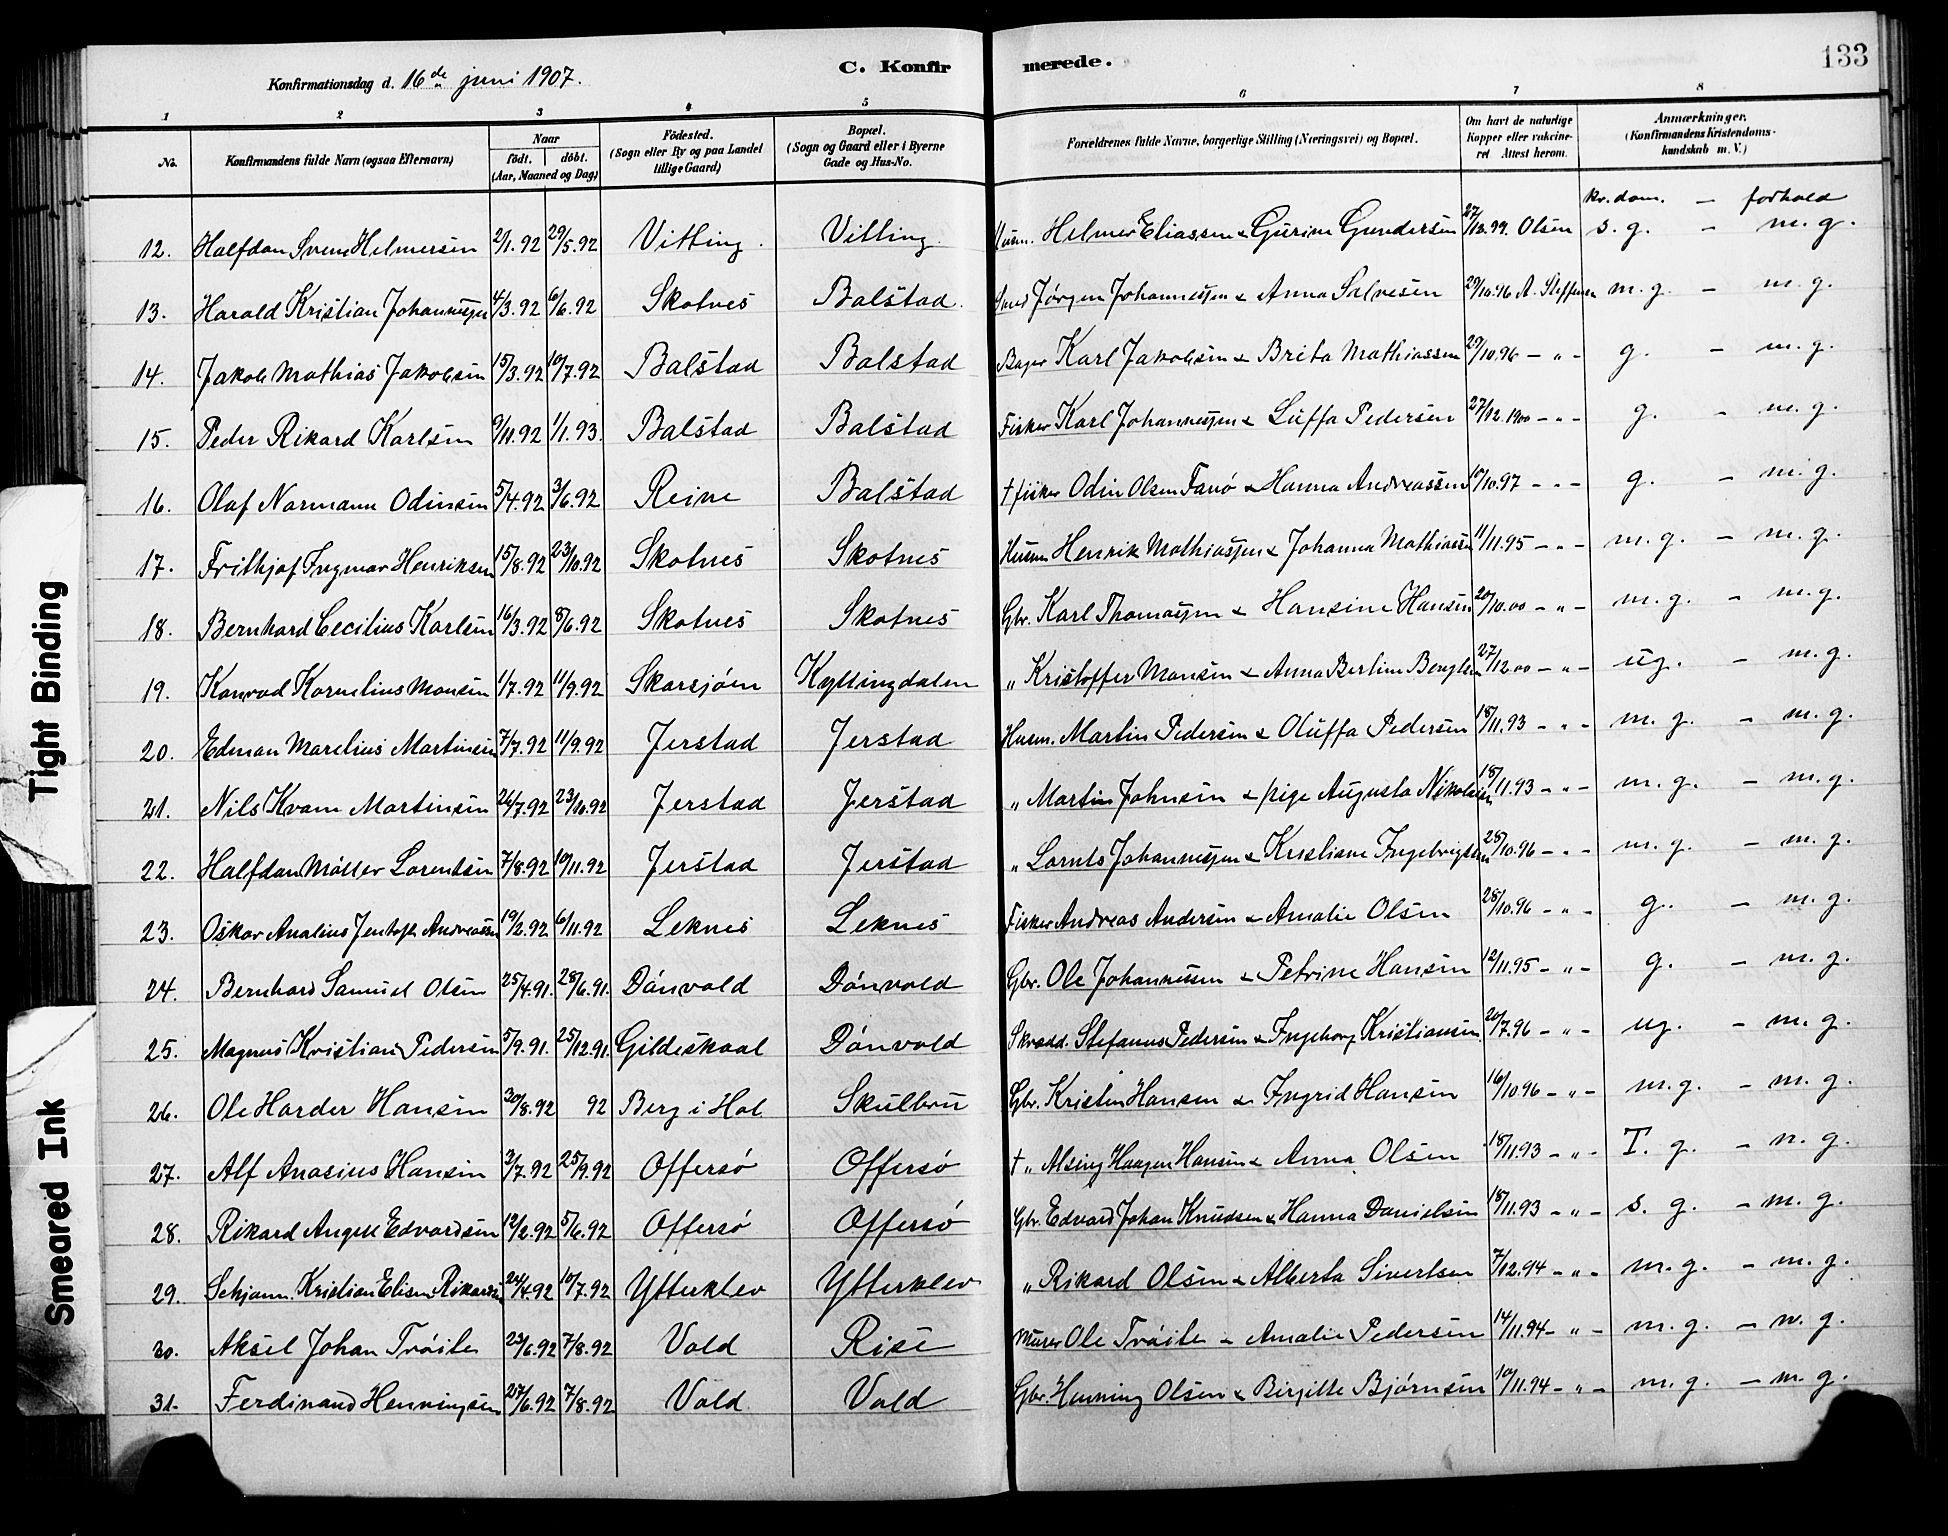 133
C. Konfirmerede.
Konfirmationsdag d. 16de juni 1907.
1 2 3 4 5 6 7 8
No. Konfirmandens fulde Navn (ogsaa Efternavn) Naar födt. döbt. (Aar, Maaned og Dag) Födested. (Sogn eller By og paa Landet tillige Gaard) Bopæl. (Sogn og Gaard eller i Byerne Gade og Hus-No. Forældrenes fulde Navne, borgerlige Stilling (Næringsvei) og Bopæl. Om havt de naturlige Kopper eller vakcineret Attest herom. Anmærkninger. (Konfirmandens Kristendomskundskab m. V.)
kr.dom. - forhold
12. Halfdan Svens Helmersen 2/1.92 29/5.92 Vitting. Vitting. Husm. Helmer Eliassen & Gurine Gundersen 27/12.99. Olsen s. g. - m. g.
13. Harald Kristian Johannessen 4/3.92 6/6.92 Skotnes Balstad. Smed Jørgen Johannessen & Anna Salvesen 29/10.96 A. Steffensen m. g. - m. g.
14. Jakob Mathias Jakobsen 15/3.92 10/7.92 Balstad Balstad Bager Karl Jakobsen & Brita Mathiassen 29/10.96 - " - g. - m. g.
15. Peder Rikard Karlsen 9/11.92 1/1.93. Balstad Balstad Fisker Karl Johannessen & Luffa Pedersen 27/12.1900 - " - g. - m. g.
16. Olaf Normann Odinsen 5/4.92 3/6.92 Reine Balstad † fisker Odin Olsen Fanø & Hanna Andreassen 15/10.97 - " - g. - m. g.
17. Frithjof Ingmar Henriksen 15/8.92 23/10.92 Skotnes Skotnes Husm Henrik Mathiassen & Johanna Mathiassen 11/11.95 - " - m. g. - m. g.
18. Bernhard Cecilius Karlsen 16/3.92 8/6.92 Skotnes Skotnes Gbr. Karl Thomassen & Hansine Hansen 20/10.00 - " - m. g. - m. g.
19. Konrad Kornelius Monsen 1/7.92 11/9.92 Skarsjøen Kyllingdalen " Kristoffer Monsen & Anna Bertine Bengtsen 27/12.00 - " - ug. - m. g.
20. Edman Marelius Martinsen 7/7.92 11/9.92 Jerstad Jerstad Husm. Martin Pedersen & Oluffa Pedersen 18/11.93 - " - m. g. - m. g.
21. Nils Kvam Martinsen 24/7.92 23/10.92 Jerstad Jerstad " Martin Johnsen & pige Augusta Nikolaisen 18/11.93 - " - m. g. - m. g.
22. Halfdan Möller Lorentsen 7/8.92 10/11.92 Jerstad Jerstad " Lornts Johannessen & Kristiane Ingebrigtsen 28/10.96 - " - m. g. - m. g.
23. Oskar Analius Jentoft Andreassen 19/2.92 6/11.92 Leknes Leknes Fisker Andreas Andersen & Amalie Olsen 28/10.96 - " - g. - m. g.
24. Bernhard Samuel Olsen 25/4.91. 28/6.91. Dönvold Dönvold Gbr. Ole Johannessen & Petrine Hansen 12/11.95 - " - g. - m. g.
25. Magnus Kristian Pedersen 5/9.91. 25/12.91. Gildeskaal Dönvold Skradd. Stefanus Pedersen & Ingeborg Kristiansen 20/7.96 - " - ug. - m. g.
26. Ole Harder Hansen 30/8.92 92 Berg i Hol Skulbru Gbr. Kristen Hansen & Ingrid Hansen 16/10.96 - " - m. g. - m. g.
27. Alf Anasius Hansen 3/7.92 25/9.92 Offersø Offersø † " Alsing Haagen Hansen & Anna Olsen 18/11.93 - " - T. g. - n. g.
28. Rikard Angell Edvardsen 12/2.92 5/6.92 Offersø Offersø Gbr. Edvard Johan Knudsen & Hanna Danielsen 18/11.93 - " - s. g. - m. g.
29. Schjønn. Kristian Elisus Rikardsen 24/4.92 10/7.92 Ytterklev Ytterklev " Rikard Olsen & Alberta Sivertsen 7/12.94 - " - m. g. - m. g.
30. Aksel Johan Tröite 23/6.92 7/8.92 Vold Rise Murer Ole Tröite - Amalie Pedersen 14/11.94 - " - m. g. - m. g.
31. Ferdinand Henningsen 27/6.92 7/8.92 Vold Vold Gbr. Henning Olsen & Birgitte Bjørnsen 10/11.94 - " - m. g. - m. g.
Tight Binding
Smeared Ink